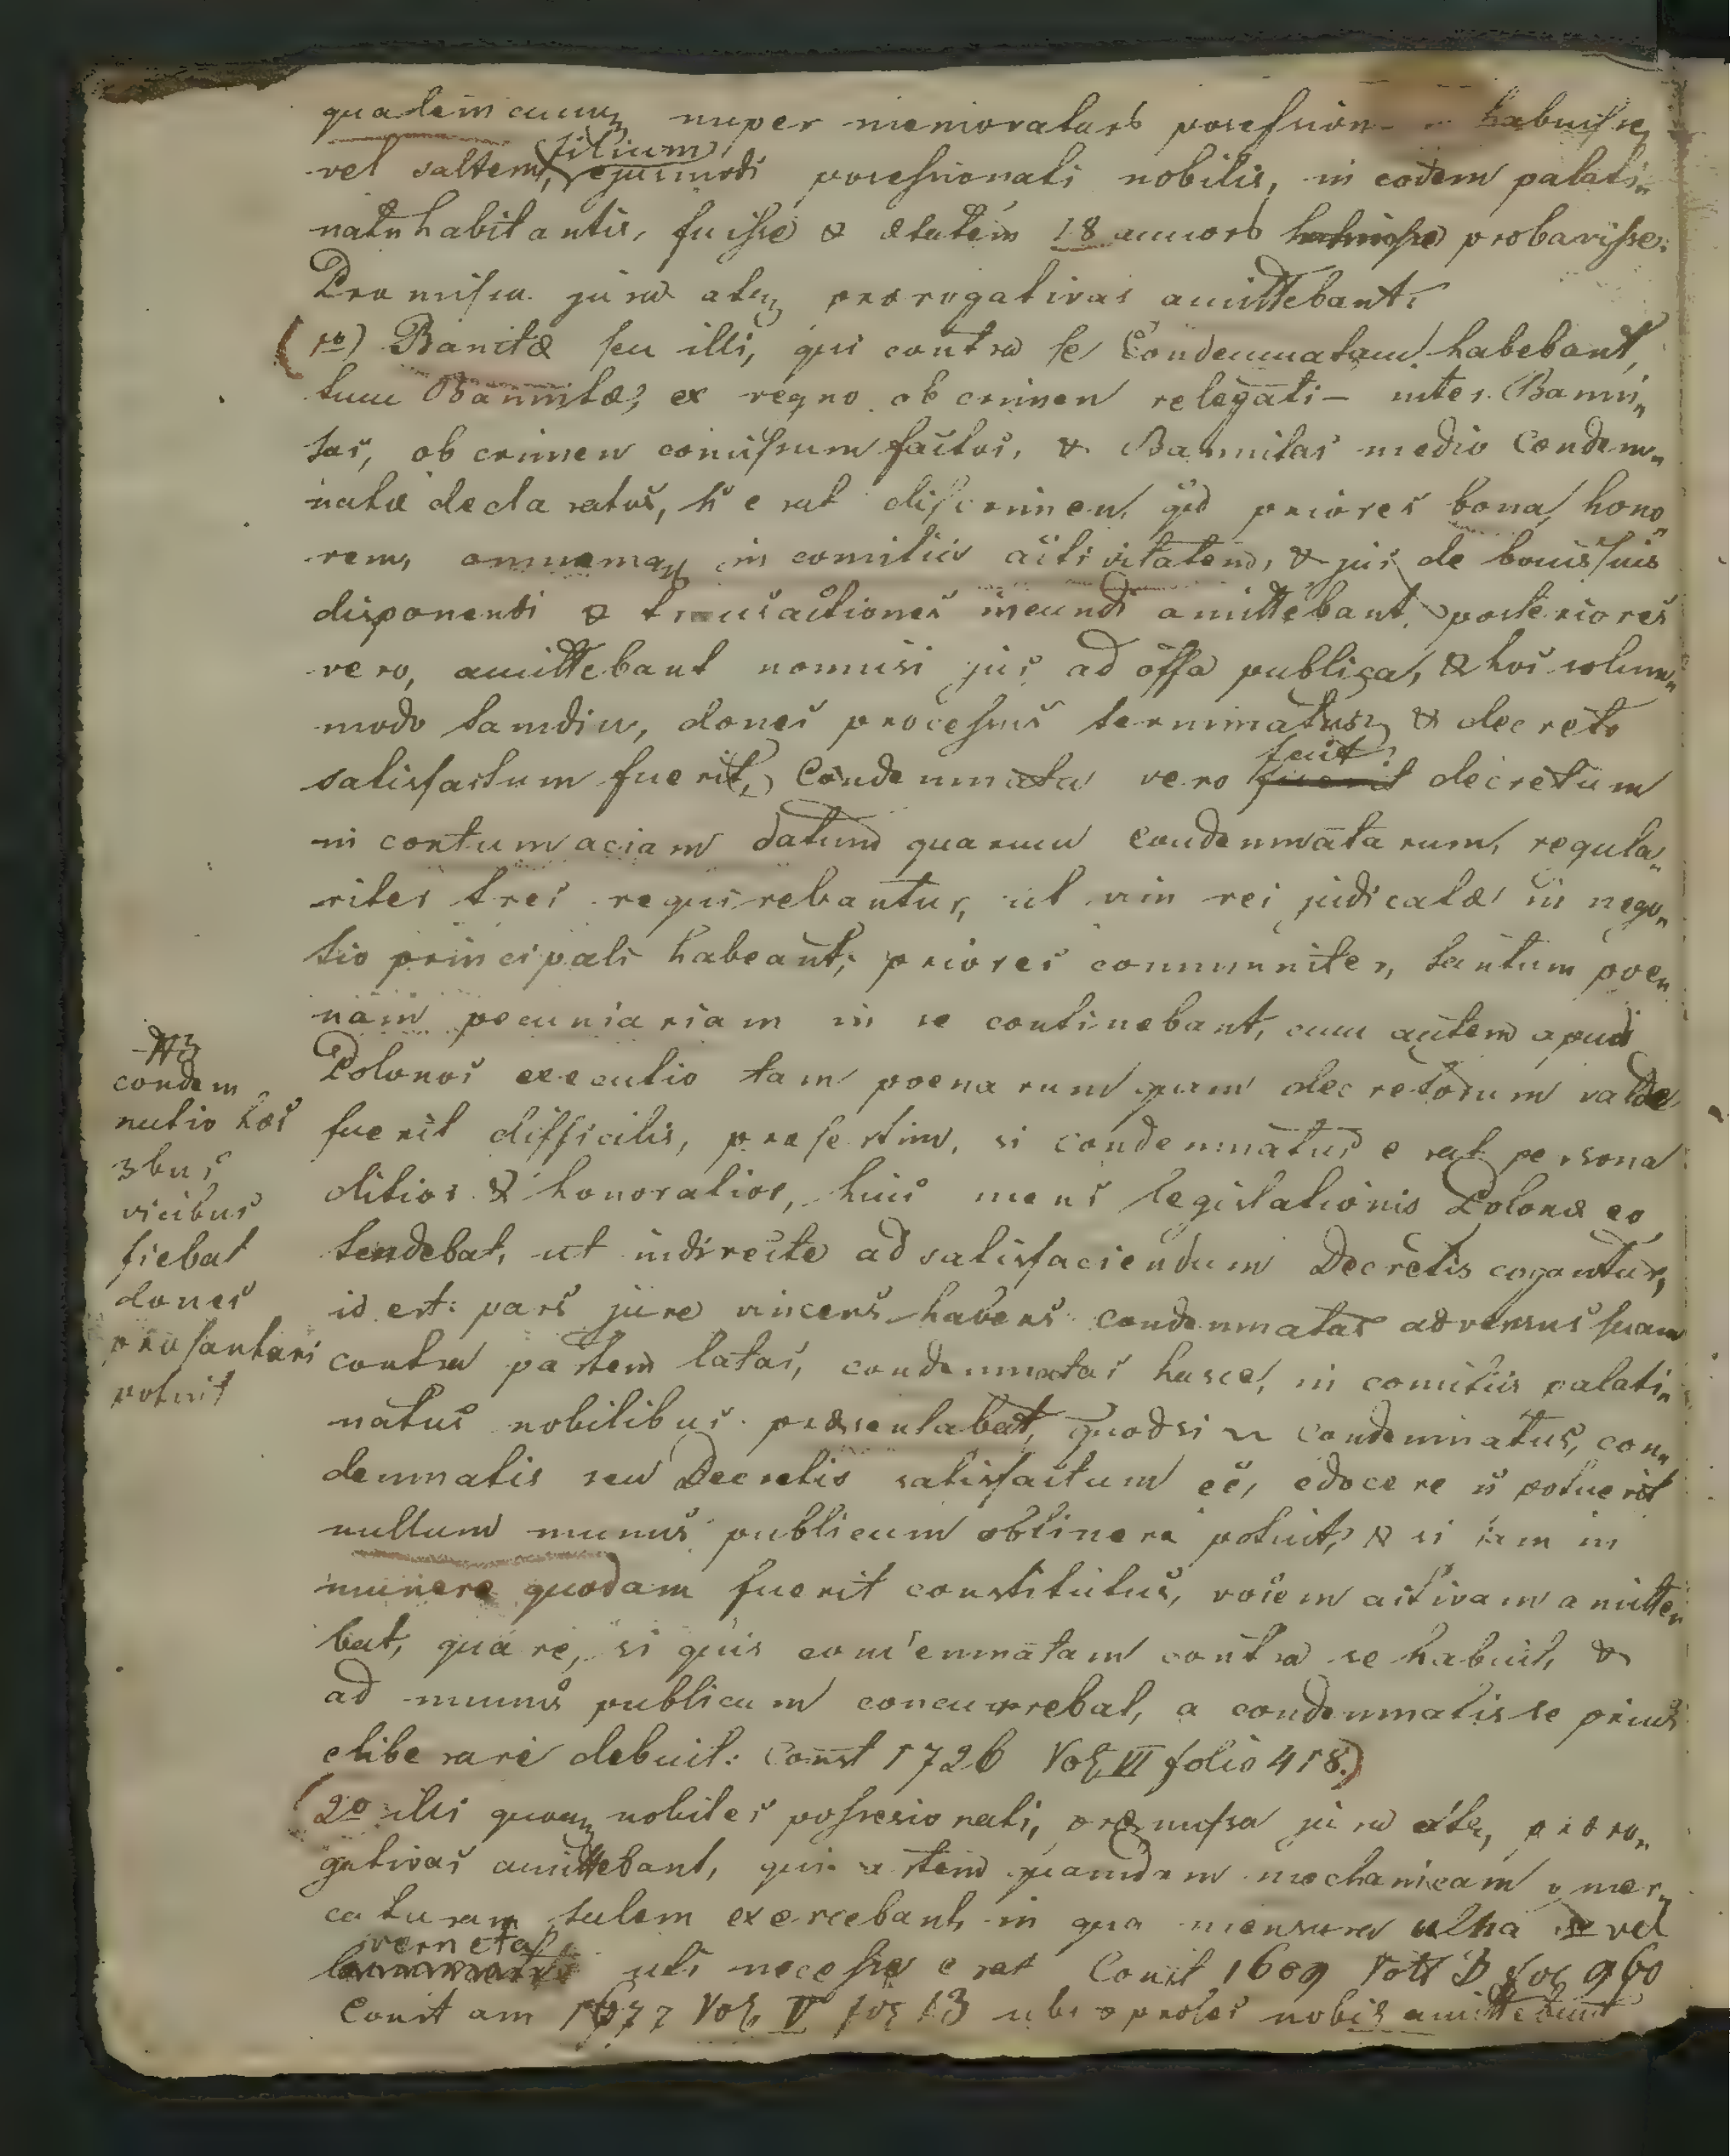 qualemcunq nuper memoratarb possession- habuisse,
vel saltem, filium ejusmodi possessionati nobilis, in eodem palati„
natu habitantis, fuisse & ætatem 18 annorb probavisse:
Præmissa jura atq prærogativas amittebant:
(1o) Banitæ seu illi, qui contra se Condemnatam habebant,
tum Bannitæ, ex regno ob crimen relegati – inter Banni„
tas, ob crimen comissum factos, & Bannitas medio Condem„
natæ declaratos, h erat discrimen qd priores bona, hono„
rem, omnemq in comitiis activitatem, & jus de bonis suis
disponendi & transactiones ineundi amittebant, posteriores
vero, amittebant nonnisi jus ad offa publica, & hos solum„
modo tamdiu, donec processus terminatus, & decreto
satisfactum fuerit,) Condemnata vero fuit decretum
in contumaciam datum quarum condemnatarum, regula„
riter tres requirebantur, ut vim rei judicatæ in nego„
tio principali habeant; priores communiter, tantum poe„
nam pecuniariam in se continebant, cum autem apud
Polonos executio tam poenarum quam decretorum valde
fuerit difficilis, præsertim, si condemnatus erat persona
ditior & honoratior, hinc mens legislationis Polonæ eo
tendebat, ut indirecte ad satisfaciendum Decretis cogantur,
id est: pars jure vincens habens condemnatas adversus suam
contra partem latas, condemnatas hasce, in comitiis palati„
natus nobilibus præsentabat, quodsi condemnatus, con„
demnatis seu Decretis satisfactum eē, edocere ñ potuerit
nullum munus publicum obtinere potuit, & si iam in
munere quodam fuerit constitutus, vocem activam amitte„
bat, quare, si quis condemnatam contra se habuit, &
ad munus publicum concurrebat, a condemnatis se prius
eliberare debuit: Const 1726 Vol VI folio 418.)
(2o illi quoq nobiles possesionati, præmissa jura atq, præro„
gativas amittebant, qui artem quamdam mechanicam, mer„
caturam talem exercebant in qua mensura ulna vel
uti necesse erat Const 1609 fol 960
Const am 1677 Vol V fol 13 ubi proles nobil amittebant
condem
natio hæc
3bus
vicibus
fiebat
donec
præsentari
potuit